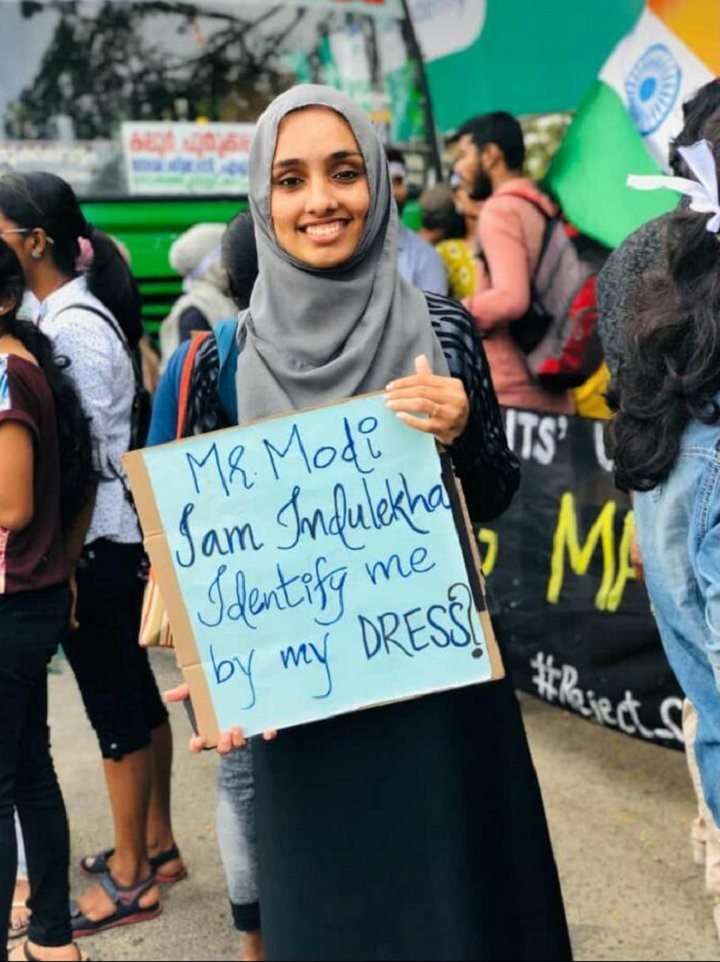 Mr. Modi
I am Indulekha
Identify me
by my DRESS?
NTS'
MA
#Reject_C